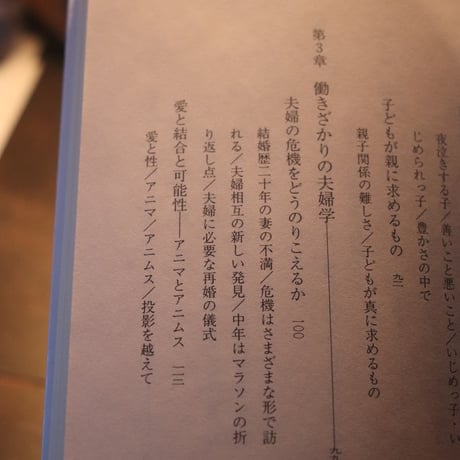 夜泣きする子／善いこと悪いこと／いじめっ子・い
じめられっ子／豊かさの中で
子どもが親に求めるもの 九二
親子関係の難しさ／子どもが真に求めるもの
第3章 働きざかりの夫婦学 九九
夫婦の危機をどうのりこえるか 一〇〇
結婚歴二十年の妻の不満／危機はさまざまな形で訪
れる／夫婦相互の新しい発見／中年はマラソンの折
り返し点／夫婦に必要な再婚の儀式
愛と結合と可能性――アニマとアニムス 一一三
愛と性／アニマ／アニムス／投影を越えて